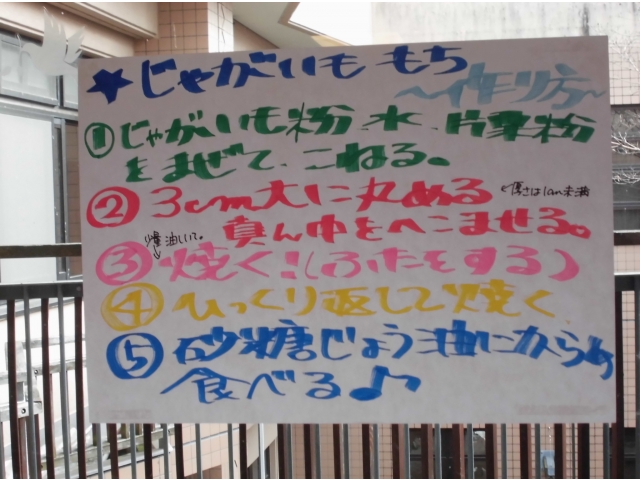 ★じゃがいももち
～作り方～
①じゃがいも粉、水、片栗粉
をまぜて、こねる。
②3cm大に丸める
厚さは1cm未満
真ん中をへこませる。
少量油しいて。
③焼く!(ふたをする)
④ひっくり返して焼く
⑤砂糖じょう油にからめ
食べる♪